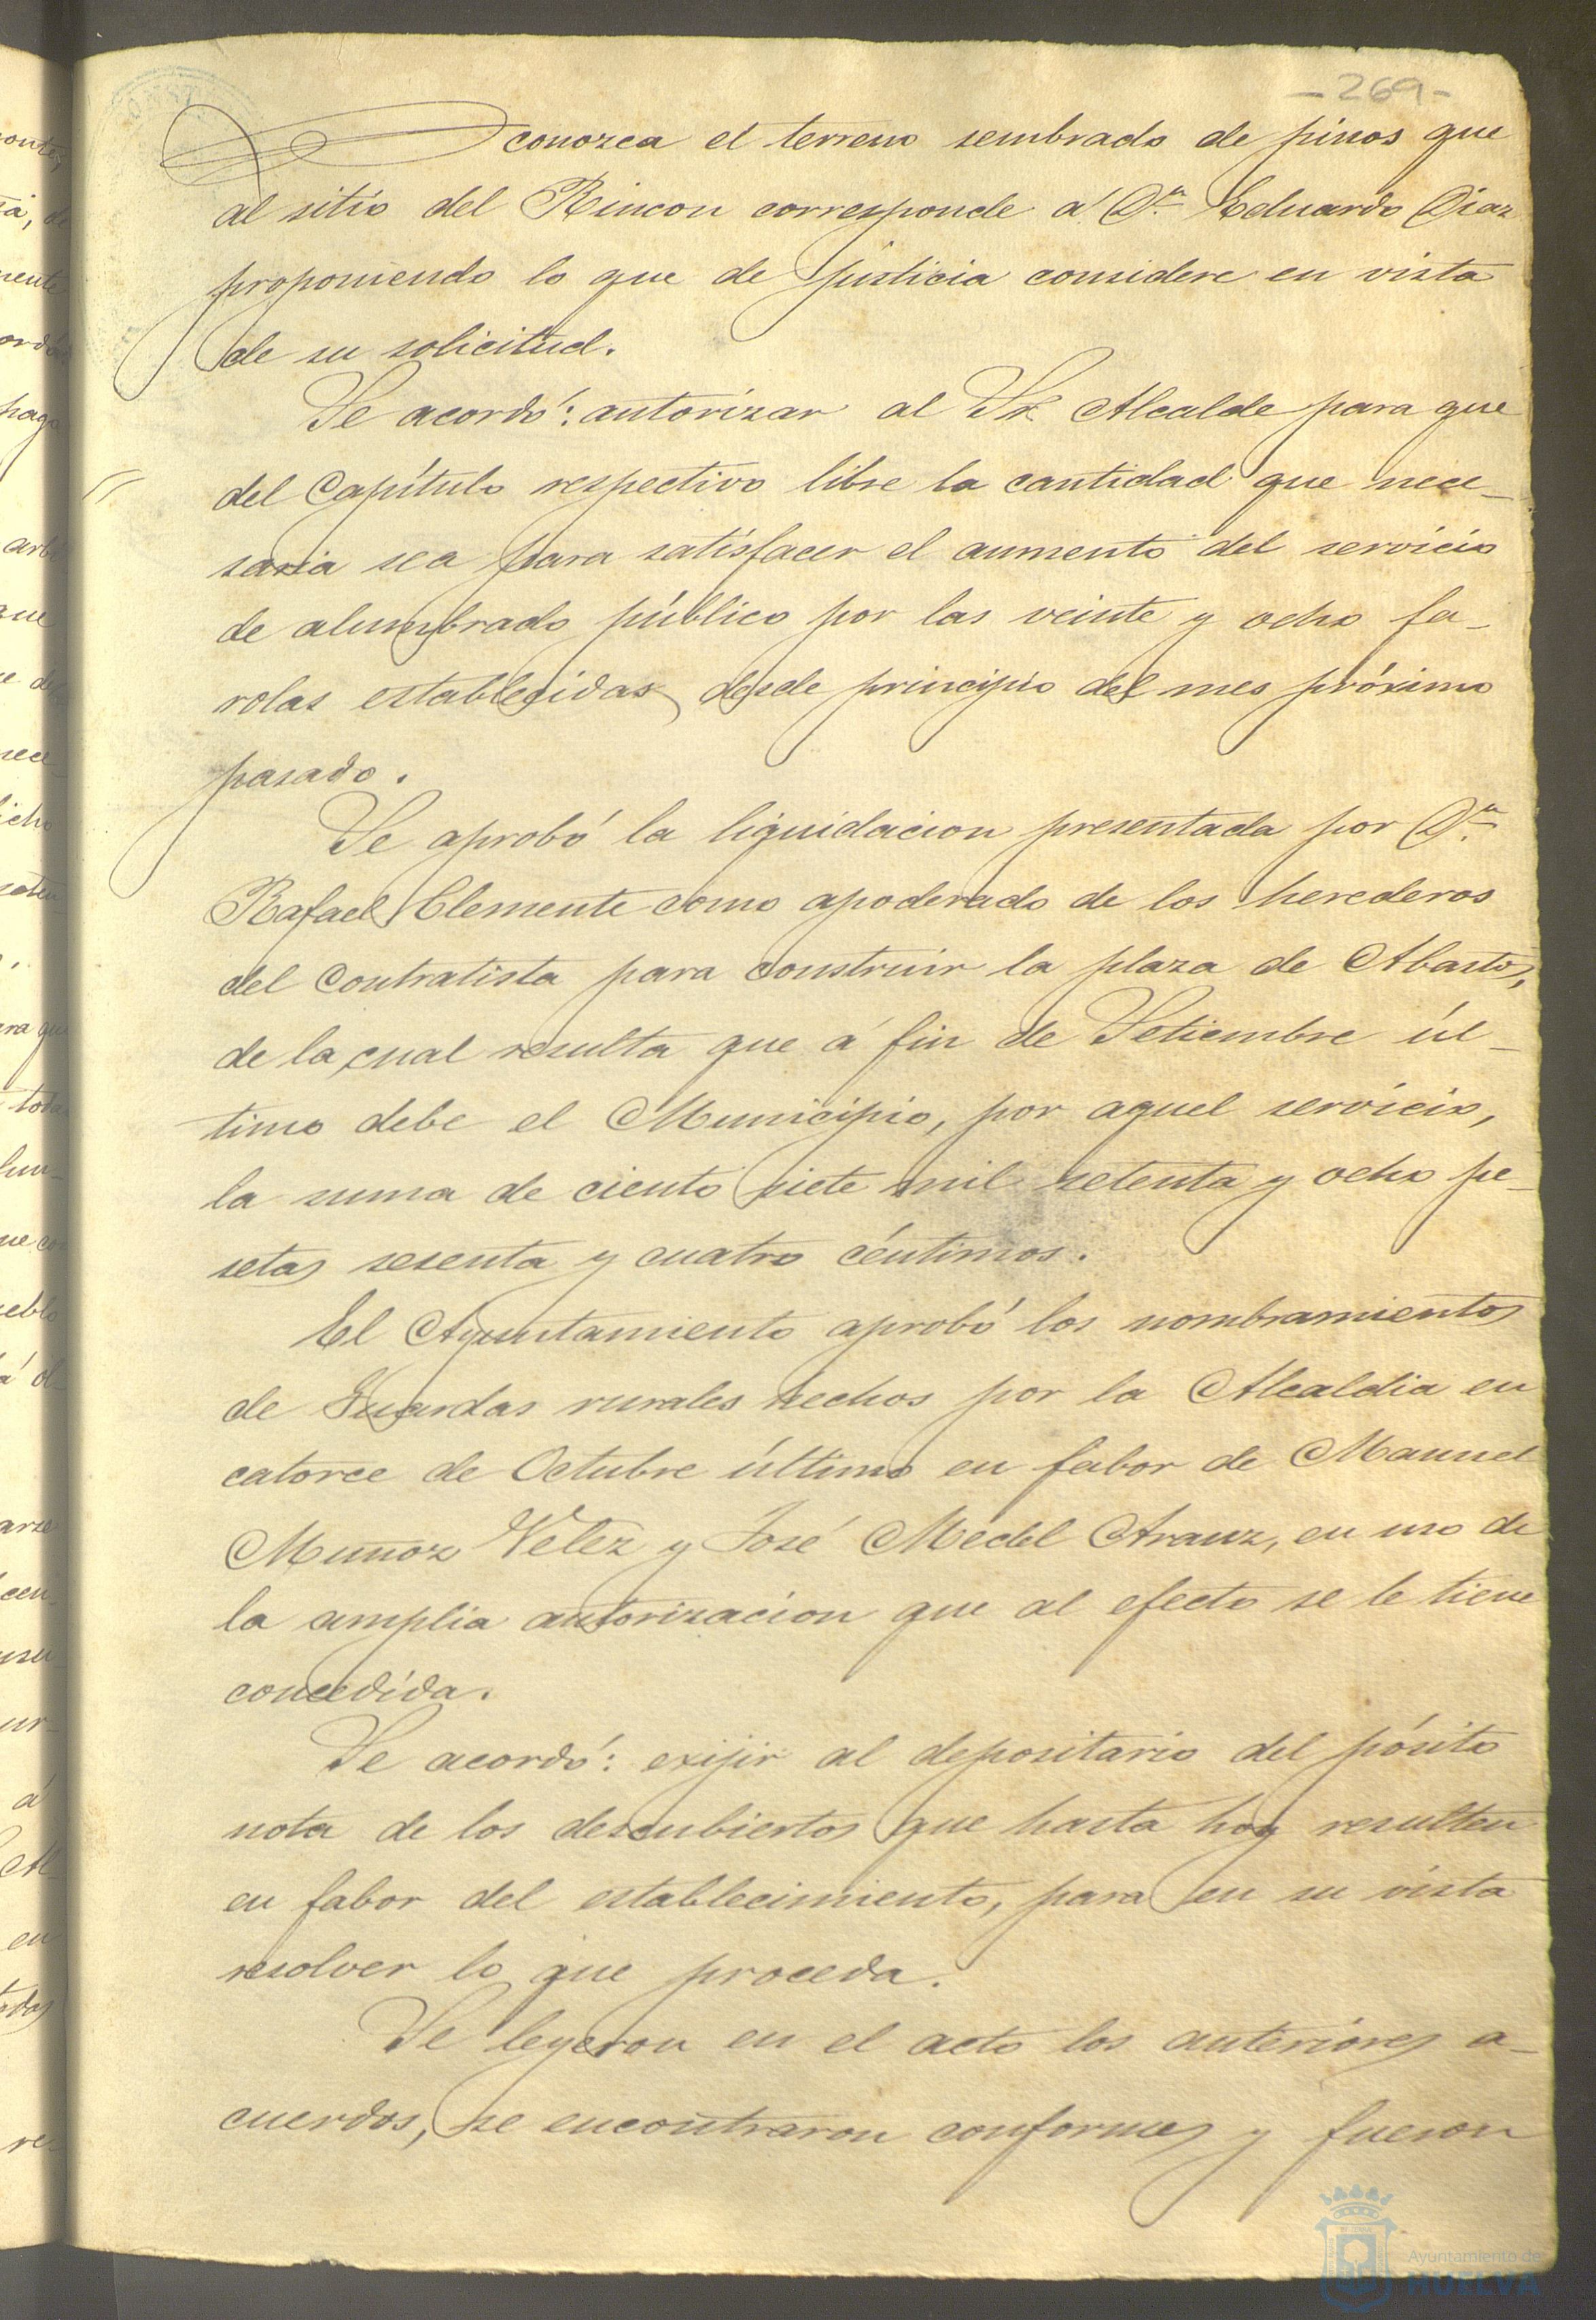 -269-
conozca el terreno sembrado de pinos que
al sitio del Rincon corresponde a' Dn. Eduardo Diaz
proponiendo lo que de justicia considere en vista
de su solicitud.
Se acordó: autorizar al Sr. Alcalde para que
del Capítulo respectivo libre la cantidad que nece-
saria sea para satisfacer el aumento del servicio
de alumbrado público por las veinte y ocho fa-
rolas establecidas desde principio del mes próximo
pasado.
Se aprobó la liquidacion presentada por Dn.
Rafael Clemente como apoderado de los herederos
del Contratista para construir la plaza de Abastos,
de la cual resulta que á fin de Setiembre úl-
timo debe el Municipio, por aquel servicio,
la suma de ciento siete mil setenta y ocho pe-
setas sesenta y cuatro céntimos.
El Ayuntamiento aprobó los nombramientos
de Guardas rurales hechos por la Alcaldia en
catorce de Octubre último en fabor de Manuel
Muñoz Velez y José Medel Arauz, en uso de
la amplia autorizacion que al efecto se le tiene
concedida.
Se acordó: exijir al depositario del pósito
nota de los descubiertos que hasta hoy resulten
en fabor del establecimiento, para en su vista
resolver lo que proceda.
Se leyeron en el acto los anteriores a-
cuerdos, se encontraron conformes y fueron
Ayuntamiento de
HUELVA